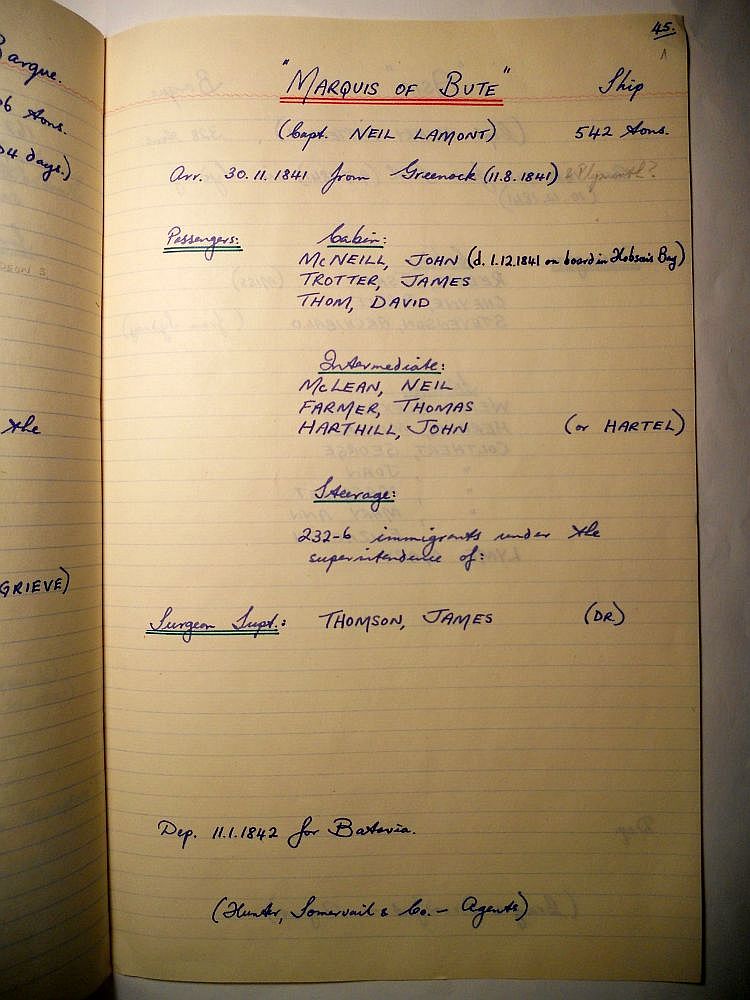 Barque.
tons.
days.)
the
GRIEVE)
45.
"MARQUIS OF BUTE" Ship
(Capt. NEIL LAMONT) 542 tons.
Arr. 30.11.1841 from Greenock (11.8.1841) & Plymouth?
Passengers: Cabin:
McNEILL, JOHN (d. 1.12.1841 on board in Hobson's Bay)
TROTTER, JAMES
THOM, DAVID
Intermediate:
McLEAN, NEIL
FARMER, THOMAS
HARTHILL, JOHN (or HARTEL)
Steerage:
232-6 immigrants under the
superintendence of:
Surgeon Supt.: THOMSON, JAMES (DR.)
Dep. 11.1.1842 for Batavia.
(Hunter, Somervail & Co. - Agents)